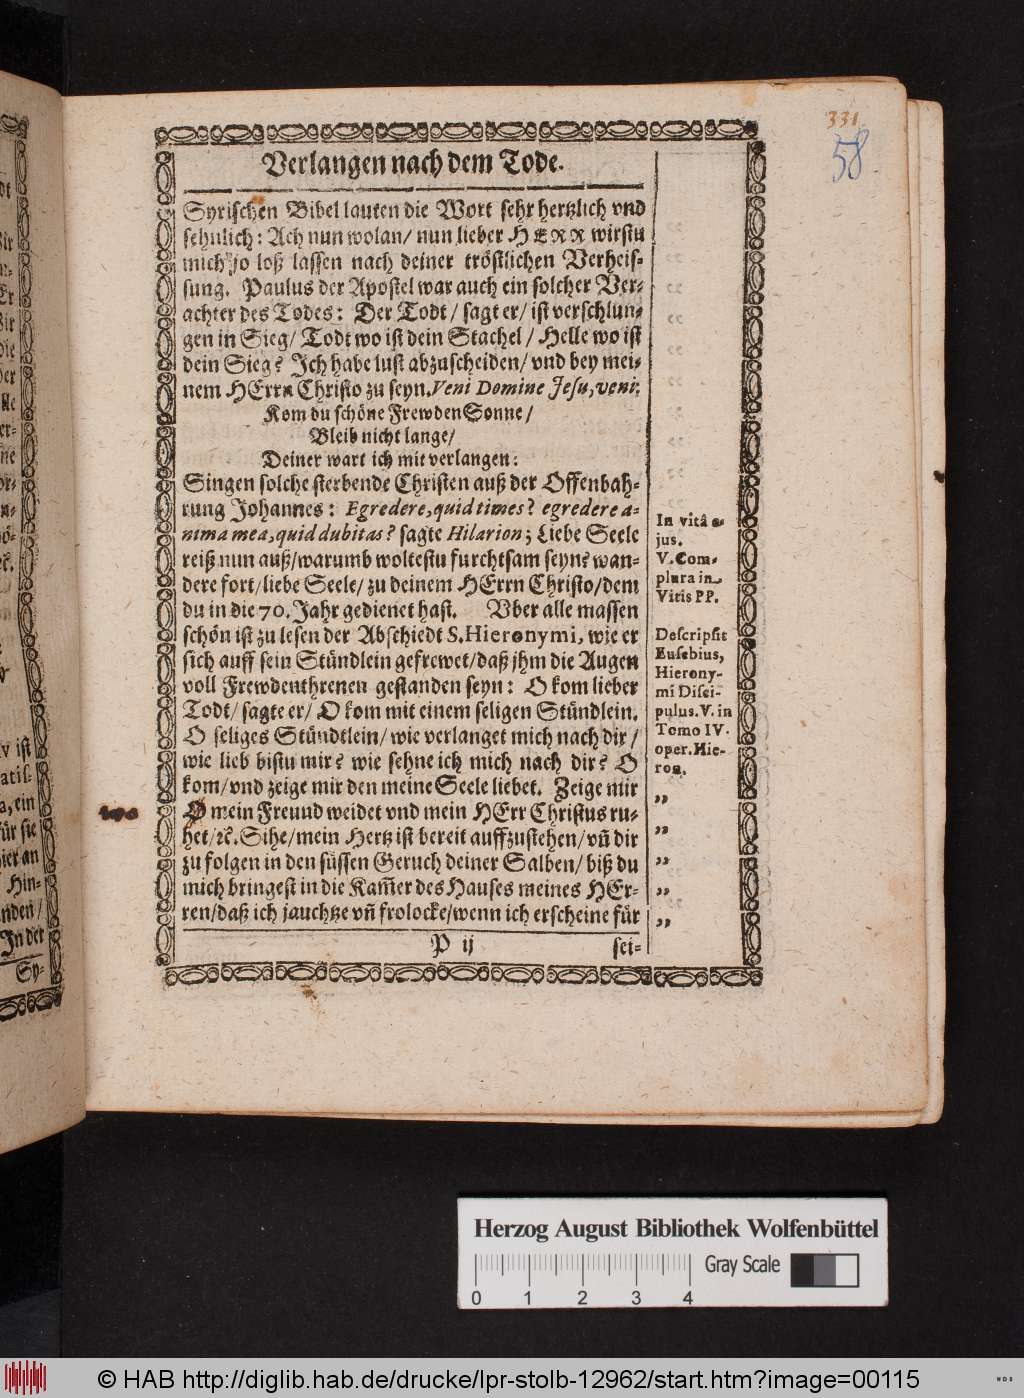 331
58
Verlangen nach dem Tode.
Syrischen Bibel lauten die Wort sehr hertzlich vnd
sehnlich: Ach nun wolan/ nun lieber HERR wirstu
mich jo loß lassen nach deiner tröstlichen Verheis-
sung. Paulus der Apostel war auch ein solcher Ver-
achter des Todes: Der Todt/ sagt er/ ist verschlun-
gen in Sieg/ Todt wo ist dein Stachel/ Helle wo ist
dein Sieg? Ich habe lust abzuscheiden/ vnd bey mei-
nem HErrn Christo zu seyn. Veni Domine Jesu, veni.
Kom du schöne Frewden Sonne/
Bleib nicht lange/
Deiner wart ich mit verlangen:
Singen solche sterbende Christen auß der Offenbah-
rung Johannes: Egredere, quid times? egredere a-
nima mea, quid dubitas? sagte Hilarion; Liebe Seele
reiß nun auß/ warumb woltestu furchtsam seyn? wan-
dere fort/ liebe Seele/ zu deinem HErrn Christo/ dem
du in die 70. Jahr gedienet hast. Vber alle massen
schön ist zu lesen der Abschiedt S. Hieronymi, wie er
sich auff sein Stündlein gefrewet/ daß jhm die Augen
voll Frewdenthrenen gestanden seyn: O kom lieber
Todt/ sagte er/ O kom mit einem seligen Stündlein.
O seliges Stündtlein/ wie verlanget mich nach dir/
wie lieb bistu mir? wie sehne ich mich nach dir? O
kom/ vnd zeige mir den meine Seele liebet. Zeige mir
O mein Freund weidet vnd mein HErr Christus ru-
het/ ꝛc. Sihe/ mein Hertz ist bereit auffzustehen/ vñ dir
zu folgen in den süssen Geruch deiner Salben/ biß du
mich bringest in die Kam̃er des Hauses meines HEr-
ren/ daß ich jauchtze vñ frolocke/ wenn ich erscheine für
P ij
sei-
In vitâ e-
jus.
V. Com-
plura in
Vitis PP.
Descripsit
Eusebius,
Hierony-
mi Disci-
pulus. V. in
Tomo IV.
oper. Hie-
ron.
„
„
„
„
„
wo
v ist
a, ein
für sie
hier an
Hin-
nden/
In der
Sy-
Herzog August Bibliothek Wolfenbüttel
Gray Scale
0 1 2 3 4
© HAB http://diglib.hab.de/drucke/lpr-stolb-12962/start.htm?image=00115